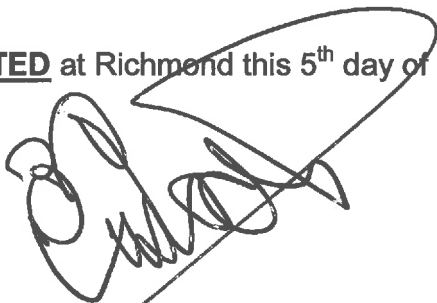 TED at Richmond this 5th day of